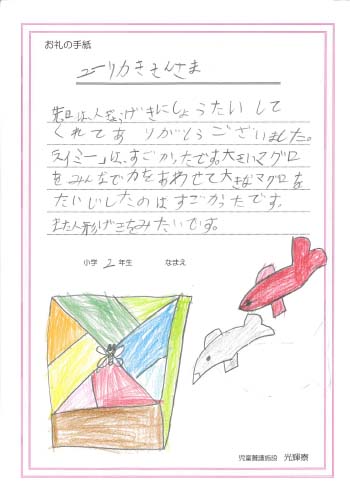 お礼の手紙
ユーリカきもんさま
先日は、人ぎょうげきにしょうたいして
くれてありがとうございました。
スイミーは、すごかったです。大きいマグロ
をみんなで力をあわせて大きなマグロを
たいじしたのはすごかったです。
また人形げきをみたいです。
小学 2 年生 なまえ
児童養護施設 光輝寮